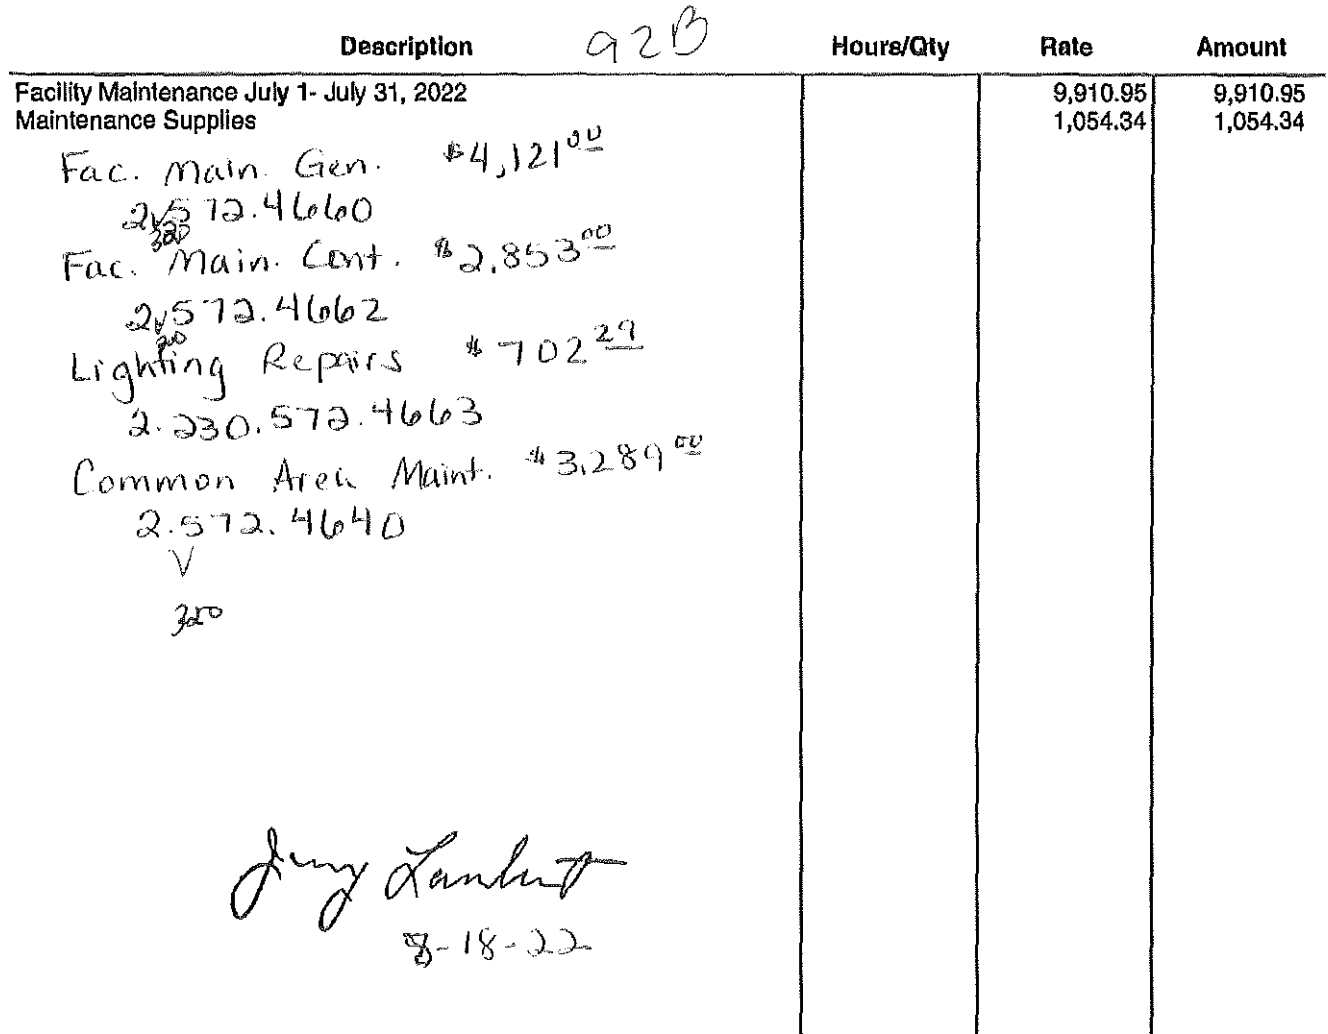 Description 92B Hours/Qty Rate Amount
Facility Maintenance July 1- July 31, 2022 9,910.95 9,910.95
Maintenance Supplies 1,054.34 1,054.34
Fac. Main. Gen. $4,121.00
2.572.4660
320
Fac. Main. Cont. $2,853.00
2.572.4662
320
Lighting Repairs $702.29
2.330.572.4663
Common Area Maint. $3,289.00
2.572.4640
V
320
Jerry Lambert
8-18-22